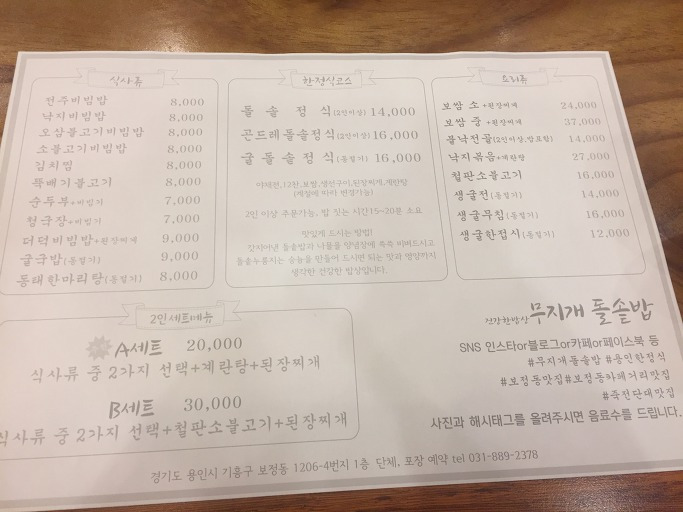 식사류
전주비빔밥 8,000
낙지비빔밥 8,000
오삼불고기비빔밥 8,000
소불고기비빔밥 8,000
김치찜 8,000
뚝배기불고기 8,000
순두부+비빔기 7,000
청국장+비빔기 7,000
더덕비빔밥+된장찌개 9,000
굴국밥(동절기) 9,000
동래한마리탕(동절기) 8,000
한정식코스
돌솥정식(2인이상) 14,000
곤드레돌솥정식(2인이상) 16,000
굴돌솥정식(동절기) 16,000
야채전,12찬,보쌈,생선구이,된장찌개,계란탕
(계절에 따라 변경가능)
2인 이상 주문가능, 밥 짓는 시간15~20분 소요
맛있게 드시는 방법!
갓지어낸 돌솥밥과 나물을 양념장에 쓱쓱 비벼드시고
돌솥누룽지는 숭늉을 만들어 드시면 되는 맛과 영양까지
생각한 건강한 밥상입니다.
요리류
보쌈 소+된장찌개 24,000
보쌈 중+된장찌개 37,000
불낙전골(2인이상,) 14,000
낙지볶음+계란탕 27,000
철판소불고기 16,000
생굴전(동절기) 14,000
생굴무침(동절기) 16,000
생굴한접시(동절기) 12,000
2인세트메뉴
A세트 20,000
식사류 중 2가지 선택+계란탕+된장찌개
B세트 30,000
식사류 중 2가지 선택+철판소불고기+된장찌개
건강한밥상 무지개 돌솥밥
SNS 인스타or블로그or카페or페이스북 등
#무지개돌솥밥 #용인한정식
#보정동맛집#보정동카페거리맛집
#죽전단대맛집
사진과 해시태그를 올려주시면 음료수를 드립니다.
경기도 용인시 기흥구 보정동 1206-4번지 1층 단체, 포장 예약 tel 031-889-2378